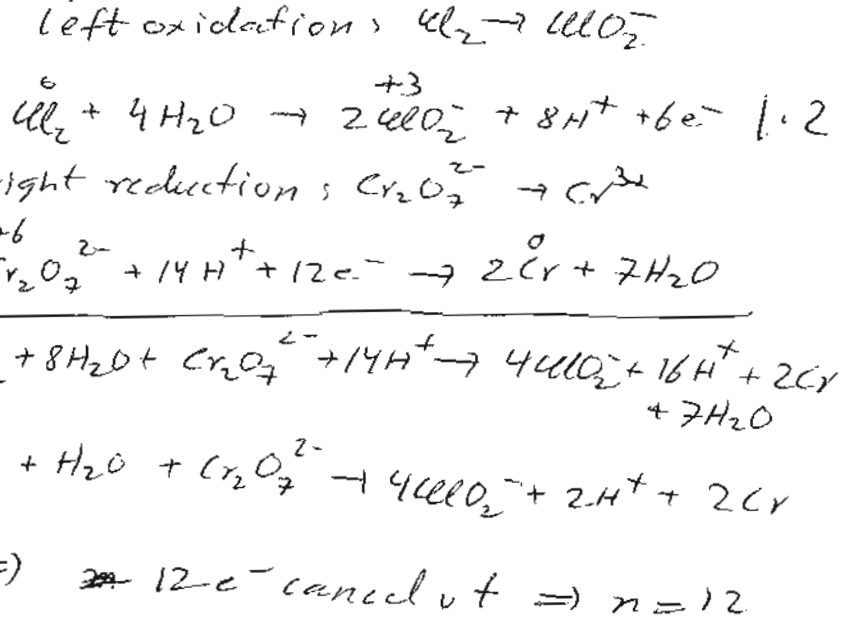 left oxidation: Cl₂ → ClO₂⁻
Cl₂ + 4H₂O → 2ClO₂⁻ + 8H⁺ + 6e⁻ | · 2
ight reduction: Cr₂O₇²⁻ → Cr³⁺
r₂O₇²⁻ + 14H⁺ + 12e⁻ → 2Cr + 7H₂O
+ 8H₂O + Cr₂O₇²⁻ + 14H⁺ → 4ClO₂⁻ + 16H⁺ + 2Cr
+ 7H₂O
+ H₂O + Cr₂O₇²⁻ → 4ClO₂⁻ + 2H⁺ + 2Cr
=) 12e⁻ cancel ut ⇒ n = 12